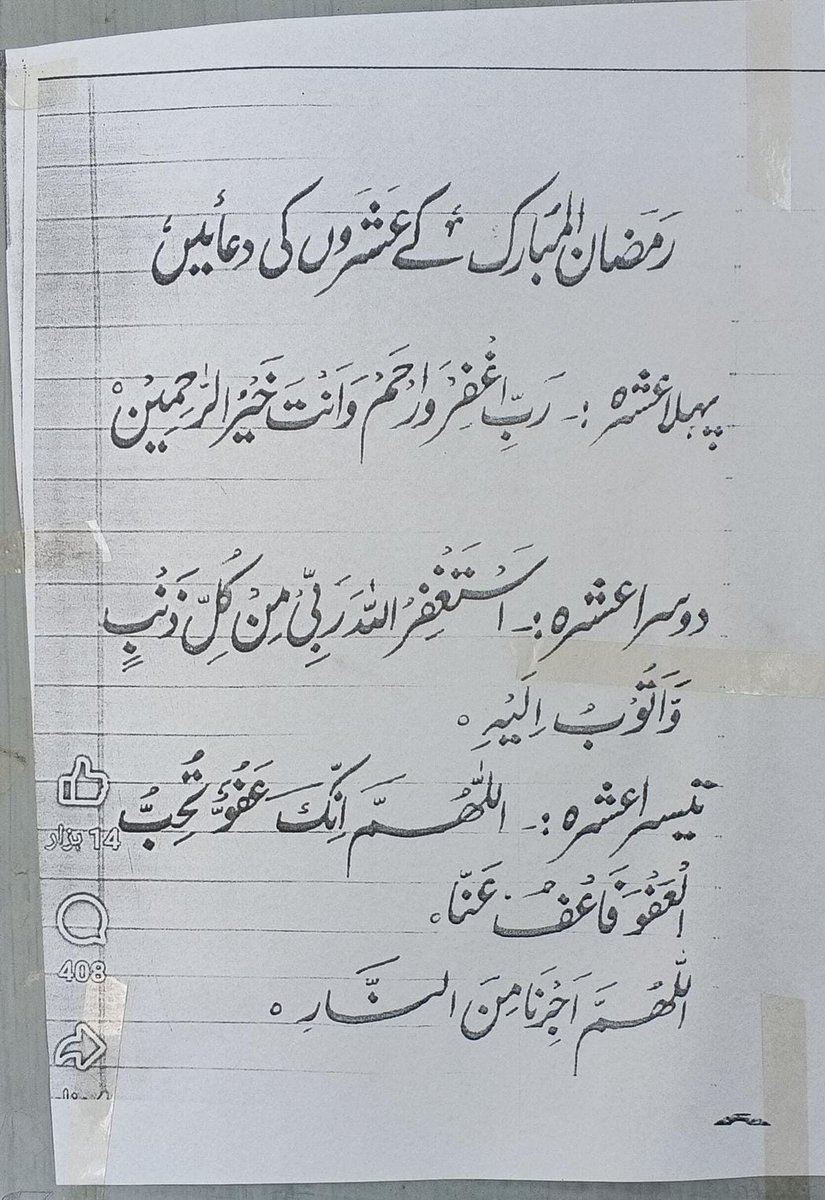 رَمَضان المُبَارک کے عَشَروں کی دعائیں
پہلا عشرہ :۔ رَبِّ اغْفِرْ وَارْحَمْ وَاَنْتَ خَیْرُ الرّٰحِمِیْن ہ
دوسرا عشرہ :۔ اَسْتَغْفِرُ اللہَ رَبِّیْ مِنْ کُلِّ ذَنْبٍ
وَّاَتُوْبُ اِلَیْہِ ہ
تیسرا عشرہ :۔ اَللّٰھُمَّ اِنَّکَ عَفُوٌّ تُحِبُّ
الْعَفْوَ فَاعْفُ عَنَّا ہ
اَللّٰھُمَّ اَجِرْنَا مِنَ النَّارِ ہ
14 ہزار
408